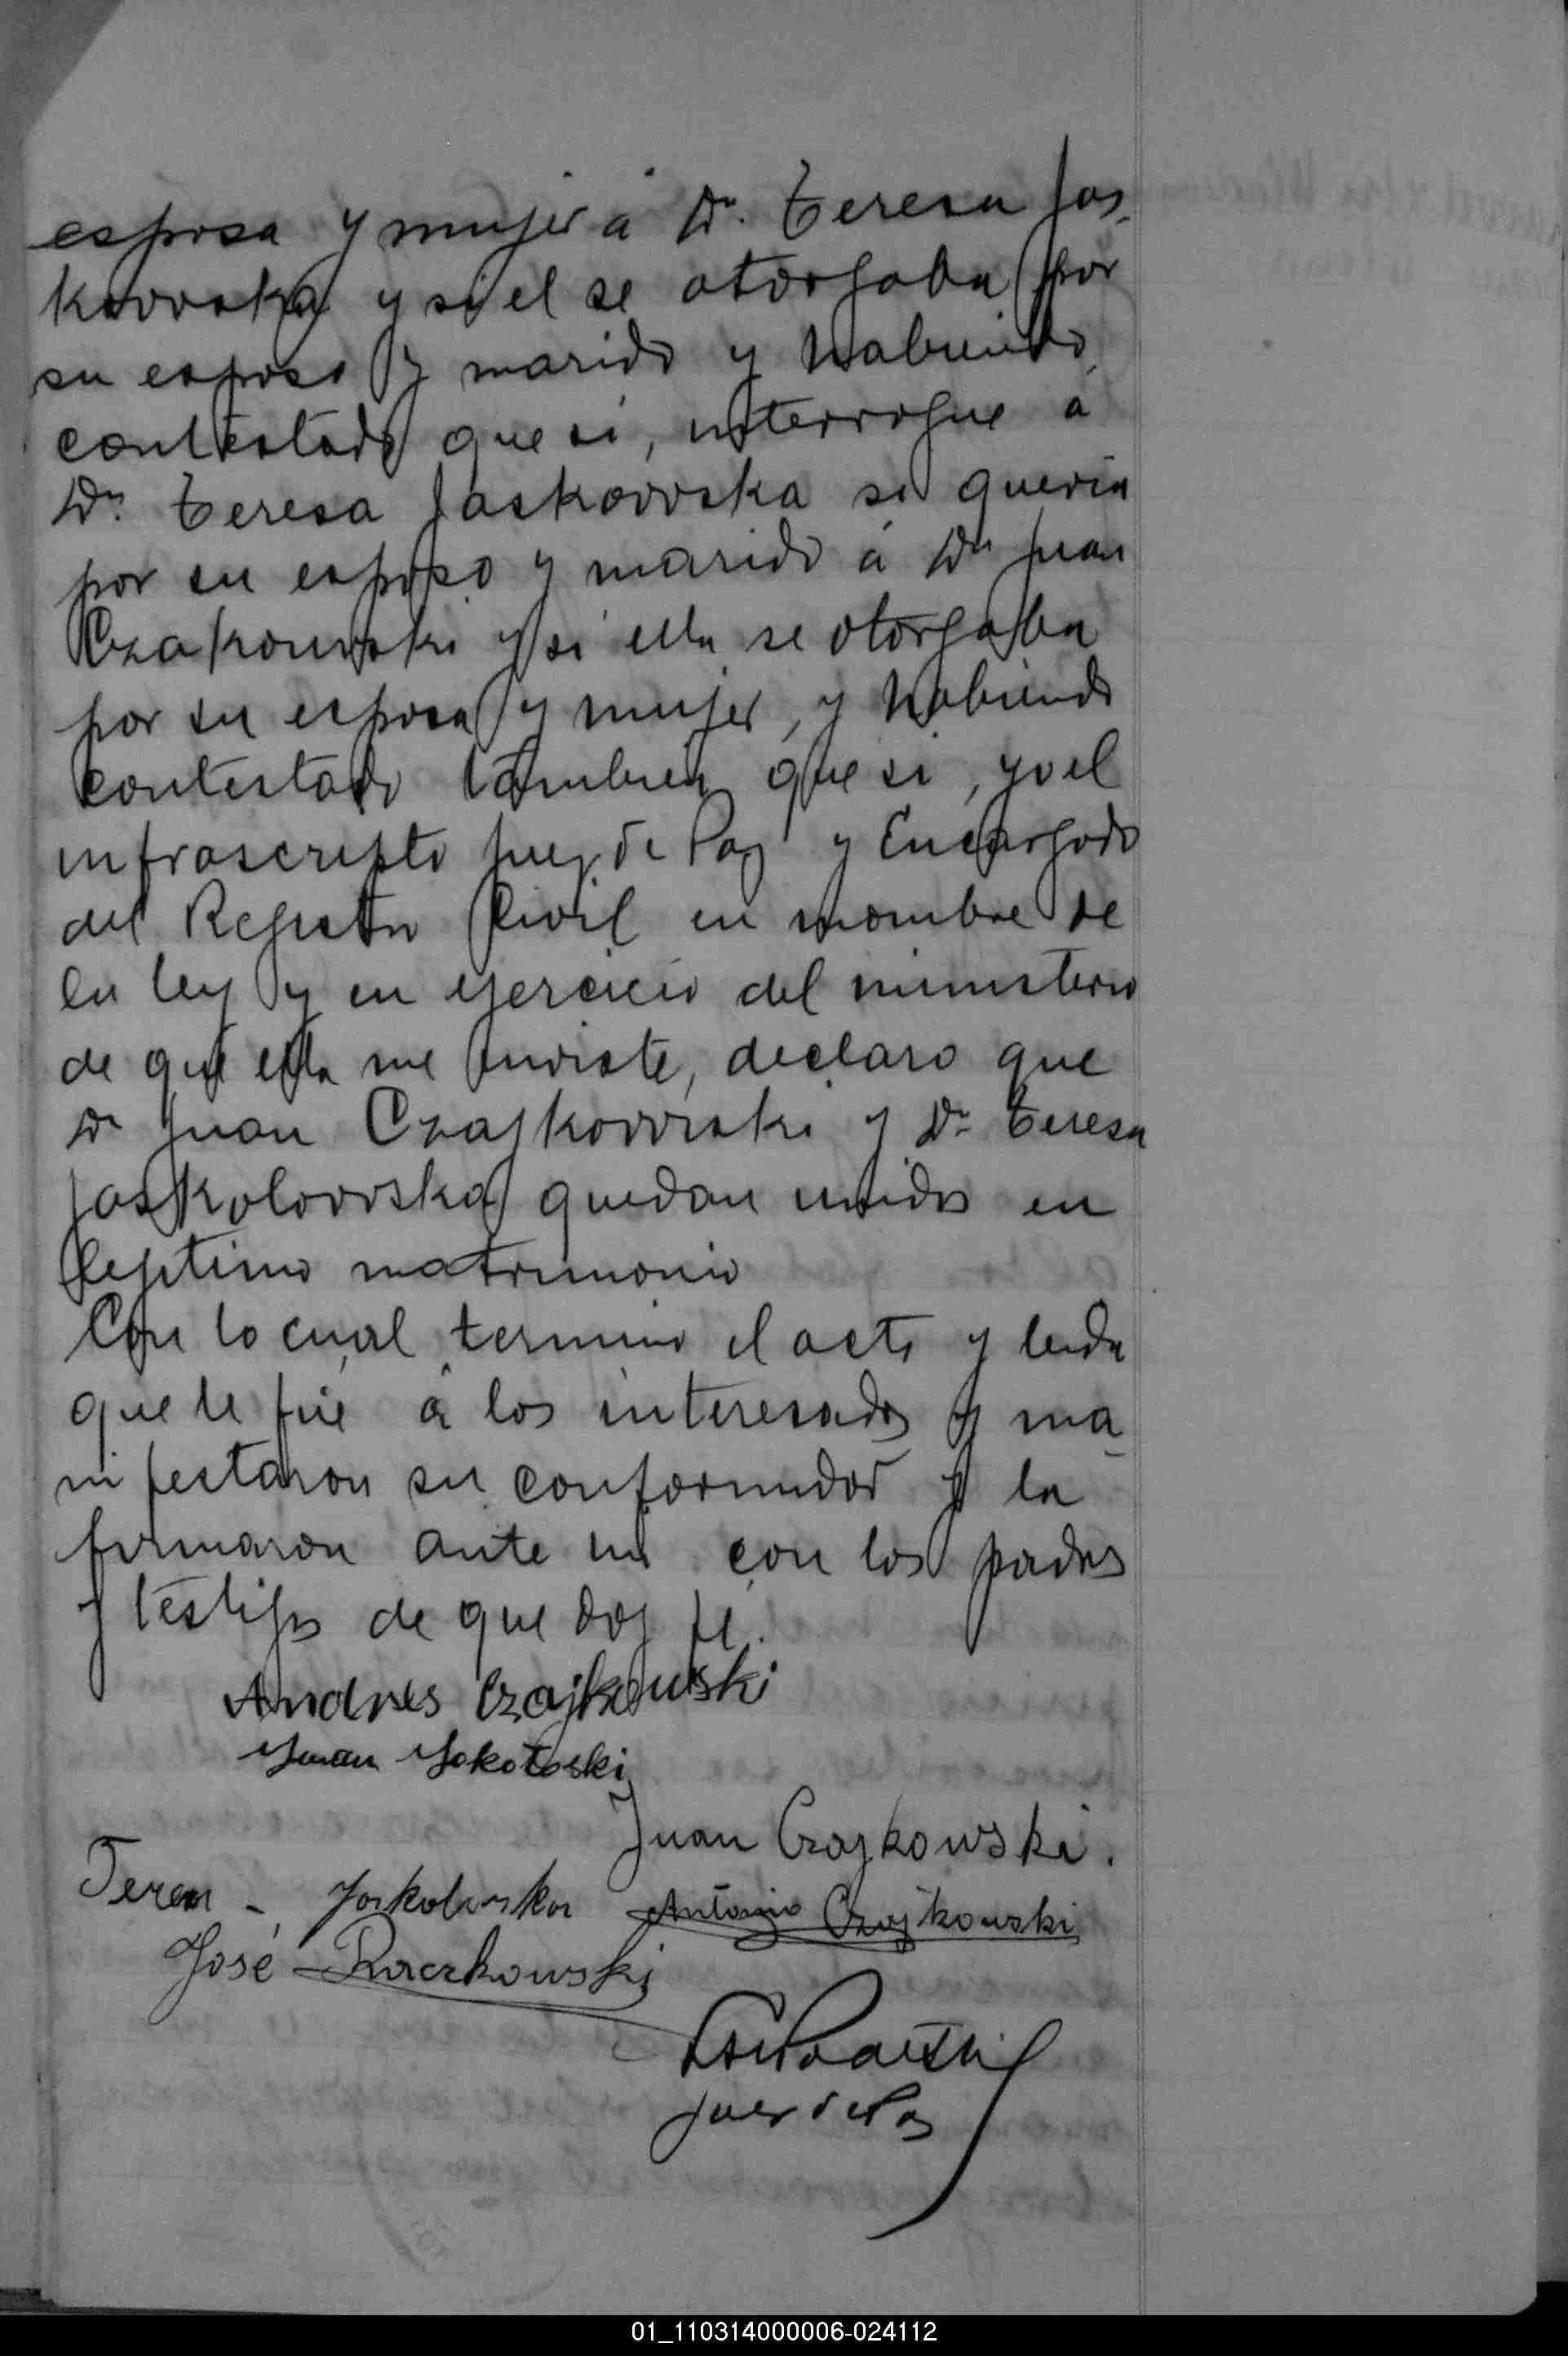 esposa y mujer á Dª. Teresa Jas-
kowska y si el se otorgaba por
su esposo y marido y habiendo
contestado que si, interrogue a
Dª. Teresa Jaskowska si queria
por su esposo y marido á Dn Juan
Czakowski y si ella se otorgaba
por su esposa y mujer, y habiendo
contestado tambien que si, yo el
infrascripto Juez de Paz y Encargado
del Registro Civil en nombre de
la ley y en ejercicio del ministerio
de que ella me inviste, declaro que
Dn Juan Czajkowski y Dª Teresa
Jaskolowska quedan unidos en
lejitimo matrimonio
Con lo cual termino el acto y leida
que le fué á los interesados y ma-
nifestaron su conformidad y la
firmaron ante mi con los padres
y testigos de que doy fé.
Andres Czajkowski
Juan Jokotoski
Juan Czajkowski.
Teresa - Joskolwska Antonio Czajkowski
José Raczkowski
Juez de Paz
01_110314000006-024112